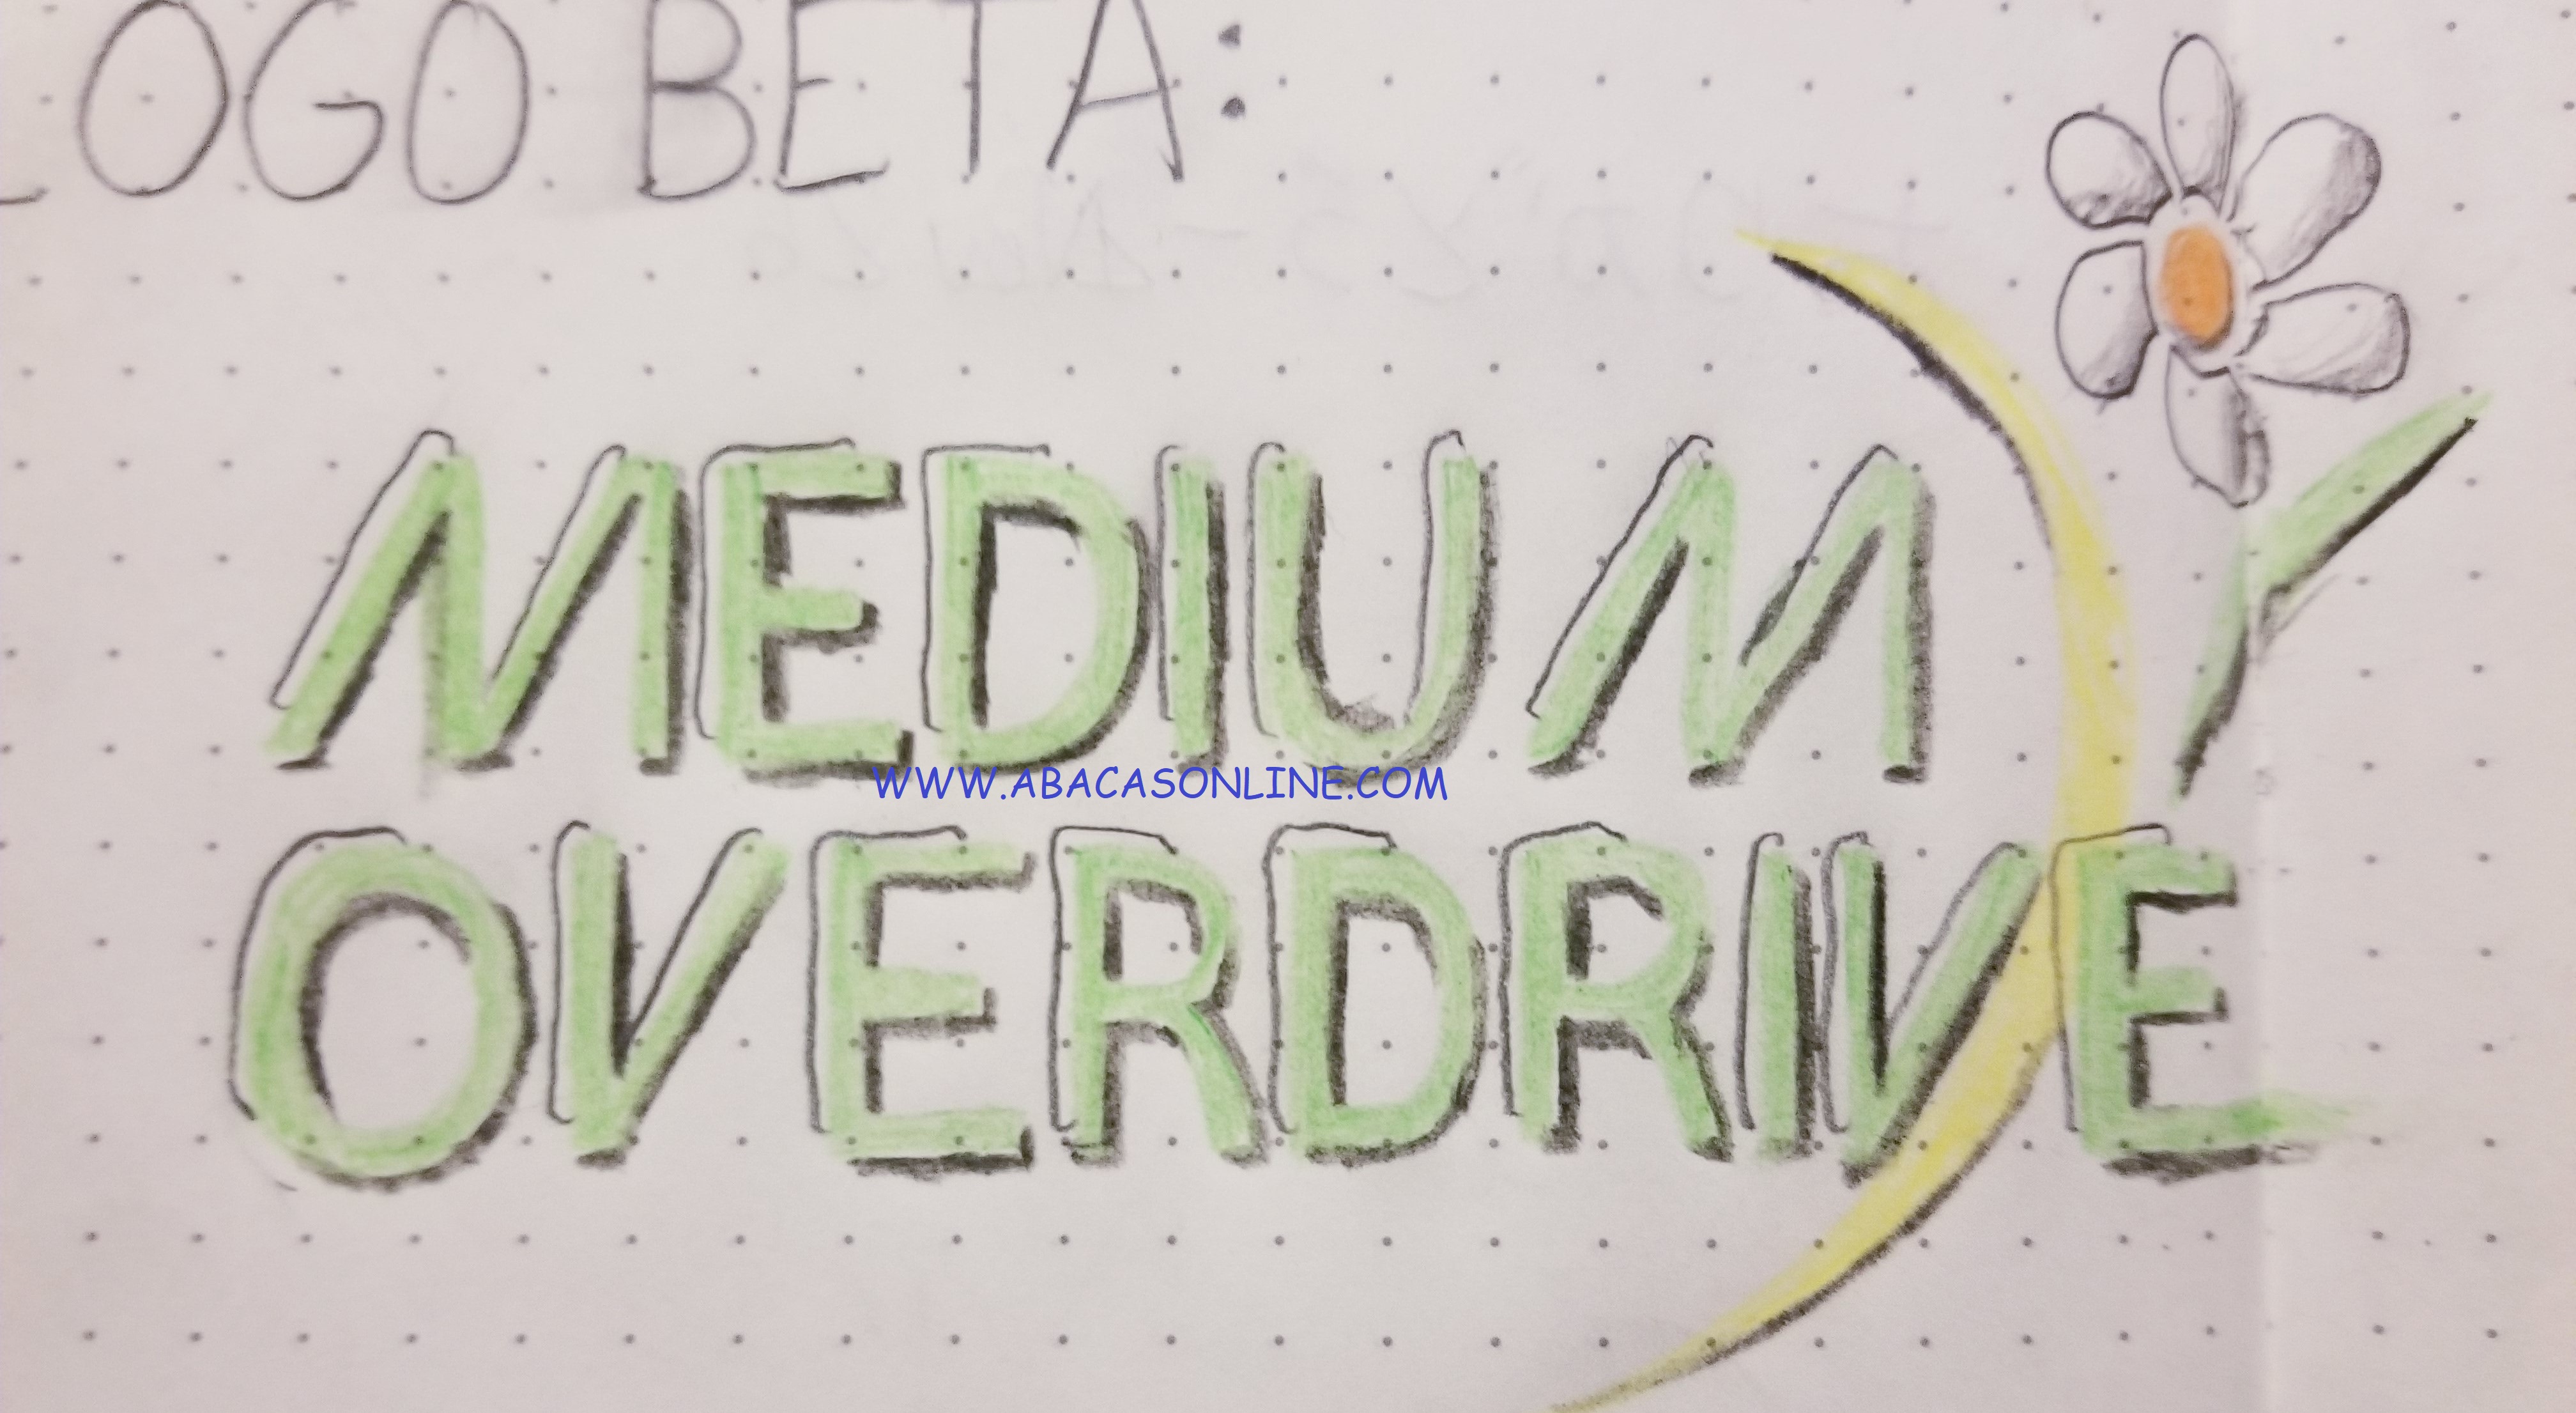 LOGO BETA:
MEDIUM
WWW.ABACASONLINE.COM
OVERDRIVE